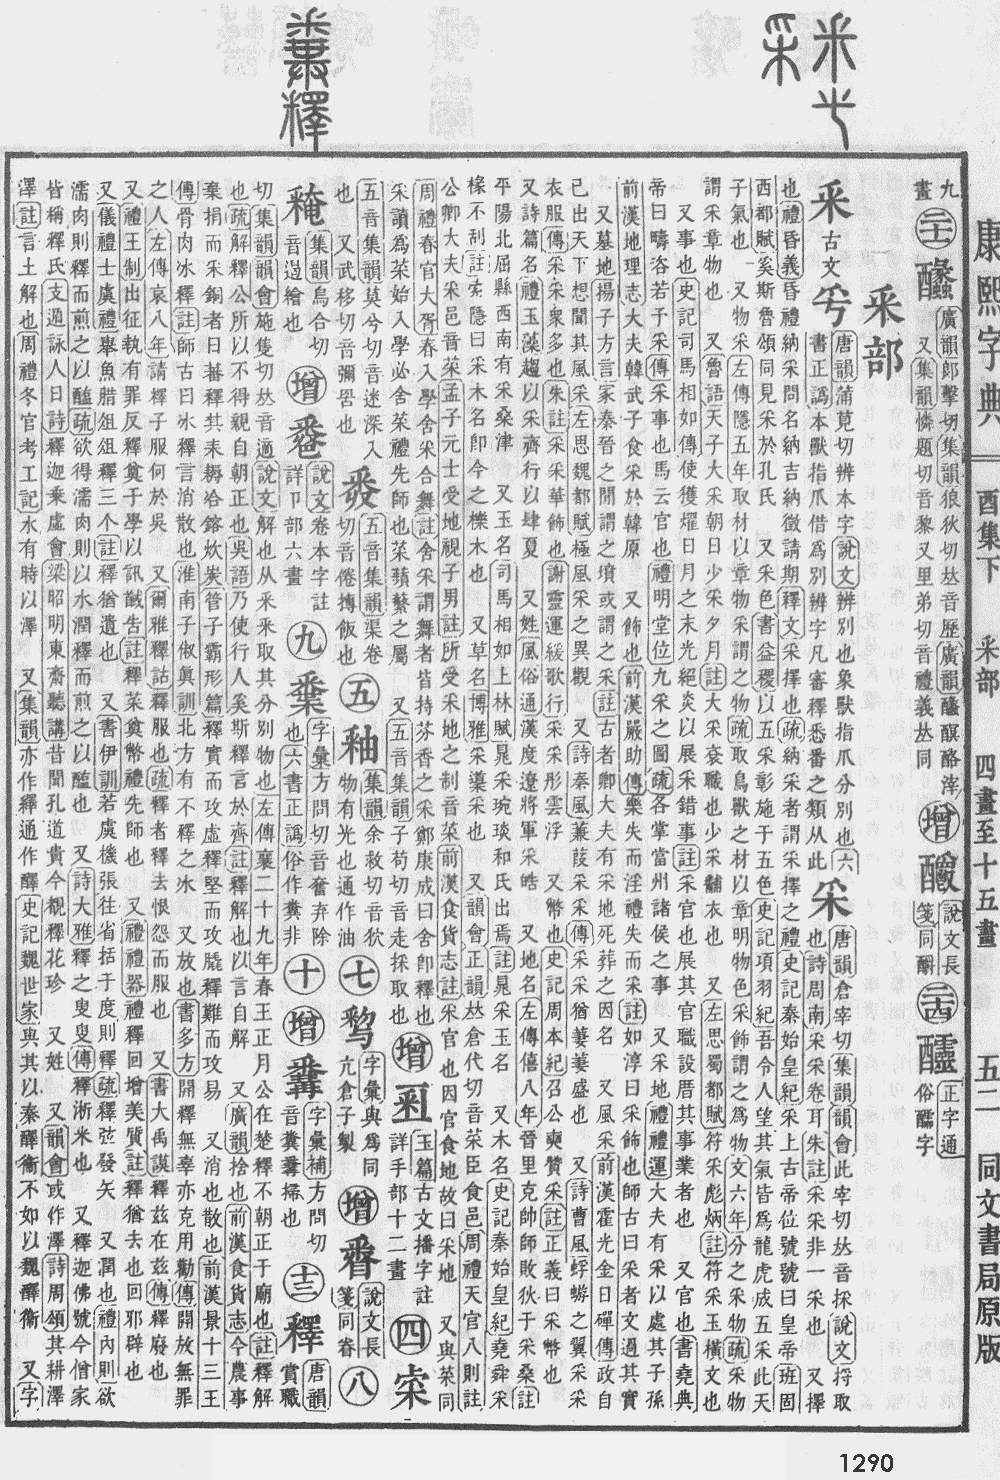 康熙字典 酉集下 釆部 四畫至十五畫 五二 同文書局原版
九畫
廣韻郎擊切集韻狼狄切𠀤音歷廣韻
又集韻憐題切音黎又里弟切音禮義𠀤同
增
說文長
箋同酬
正字通
俗醽字
釆部
釆 古文
唐韻蒲莧切辨本字說文辨別也象獸指爪分別也六
書正譌本獸指爪借爲別辨字凡審釋悉番之類从此
采
唐韻倉宰切集韻韻會此宰切𠀤音採說文捋取
也詩周南采采卷耳朱註采采非一采也 又擇
也禮昏義昏禮納采問名納吉納徵請期釋文采擇也疏納采者謂采擇之禮史記秦始皇紀采上古帝位號號曰皇帝班固
西都賦奚斯魯頌同見采於孔氏 又采色書益稷以五采彰施于五色史記項羽紀吾令人望其氣皆爲龍虎成五采此天
子氣也 又物采左傳隱五年取材以章物采謂之物疏取鳥獸之材以章明物色采飾謂之爲物文六年分之采物疏采物
謂采章物也 又魯語天子大采朝日少采夕月註大采袞職也少采黼衣也 又左思蜀都賦符采彪炳註符采玉橫文也
又事也史記司馬相如傳使獲燿日月之末光絕炎以展采錯事註采官也展其官職設厝其事業者也 又官也書堯典
帝曰疇咨若予采傳采事也馬云官也禮明堂位九采之國疏各掌當州諸侯之事 又采地禮禮運大夫有采以處其子孫
前漢地理志大夫韓武子食采於韓原 又飾也前漢嚴助傳樂失而淫禮失而采註如淳曰采飾也師古曰采者文過其實
又墓地揚子方言冢秦晉之閒謂之墳或謂之采註古者卿大夫有采地死葬之因名 又風采前漢霍光金日磾傳政自
己出天下想聞其風采左思魏都賦極風采之異觀 又詩秦風蒹葭采采傳采采猶萋萋盛也 又詩曹風蜉蝣之翼采采
衣服傳采采衆多也朱註采采華飾也謝靈運緩歌行采采彤雲浮 又幣也史記周本紀召公奭贊采註正義曰采幣也
又詩篇名禮玉藻趨以采齊行以肆夏 又姓風俗通漢度遼將軍采皓 又地名左傳僖八年晉里克帥師敗狄于采桑註
平陽北屈縣西南有采桑津 又玉名司馬相如上林賦晁采琬琰和氏出焉註晁采玉名 又木名史記秦始皇紀堯舜采
椽不刮註索隱曰采木名卽今之櫟木也 又草名博雅采蕖采也 又韻會正韻𠀤倉代切音菜臣食邑周禮天官八則註
公卿大夫采邑音菜孟子元士受地視子男註所受采地之制音菜前漢食貨志註采官也因官食地故曰采地 又與菜同
周禮春官大胥春入學舍采合舞註舍采謂舞者皆持芬香之采鄭康成曰舍卽釋也
采讀爲菜始入學必舍菜禮先師也菜蘋蘩之屬 又五音集韻子苟切音走採取也
增
玉篇古文播字註
詳手部十二畫
四
五音集韻莫兮切音迷深入
也 又武移切音彌冒也
五音集韻渠卷
切音倦摶飯也
五 釉
集韻余救切音狖
物有光也通作油
七
字彙與爲同
亢倉子製
增
說文長
箋同睿
八
集韻烏合切
音遏繪也
增
說文卷本字註
詳卩部六畫
九
字彙方問切音奮弃除
也六書正譌俗作糞非
十 增
字彙補方問切
音糞𡊄掃也
十三 釋
唐韻
賞職
切集韻韻會施隻切𠀤音適說文解也从釆釆取其分別物也左傳襄二十九年春王正月公在楚釋不朝正于廟也註釋解
也疏解釋公所以不得親自朝正也吳語乃使行人奚斯釋言於齊註釋解也以言自解 又廣韻捨也前漢食貨志今農事
棄捐而采銅者日蕃釋其耒耨冶鎔炊炭管子霸形篇釋實而攻虛釋堅而攻膬釋難而攻易 又消也散也前漢景十三王
傳骨肉冰釋註師古曰冰釋言消散也淮南子俶眞訓北方有不釋之冰 又放也書多方開釋無辜亦克用勸傳開放無罪
之人左傳哀八年請釋子服何於吳 又爾雅釋詁釋服也疏釋者釋去恨怨而服也 又書大禹謨釋茲在茲傳釋廢也
又禮王制出征執有罪反釋奠于學以訊馘告註釋菜奠幣禮先師也 又禮禮器禮釋回增美質註釋猶去也回邪辟也
又儀禮士虞禮舉魚腊俎俎釋三个註釋猶遺也 又書伊訓若虞機張往省括于度則釋疏釋弦發矢 又潤也禮內則欲
濡肉則釋而煎之以醢疏欲得濡肉則以水潤釋而煎之以醢也 又詩大雅釋之叟叟傳釋淅米也 又釋迦佛號今僧家
皆稱釋氏支遁詠八日詩釋迦乘虛會梁昭明東齋聽講昔聞孔道貴今覩釋花珍 又姓 又韻會或作澤詩周頌其耕澤
澤註言土解也周禮冬官考工記水有時以澤 又集韻亦作繹通作醳史記魏世家與其以秦醳衞不如以魏醳衞 又字
1290